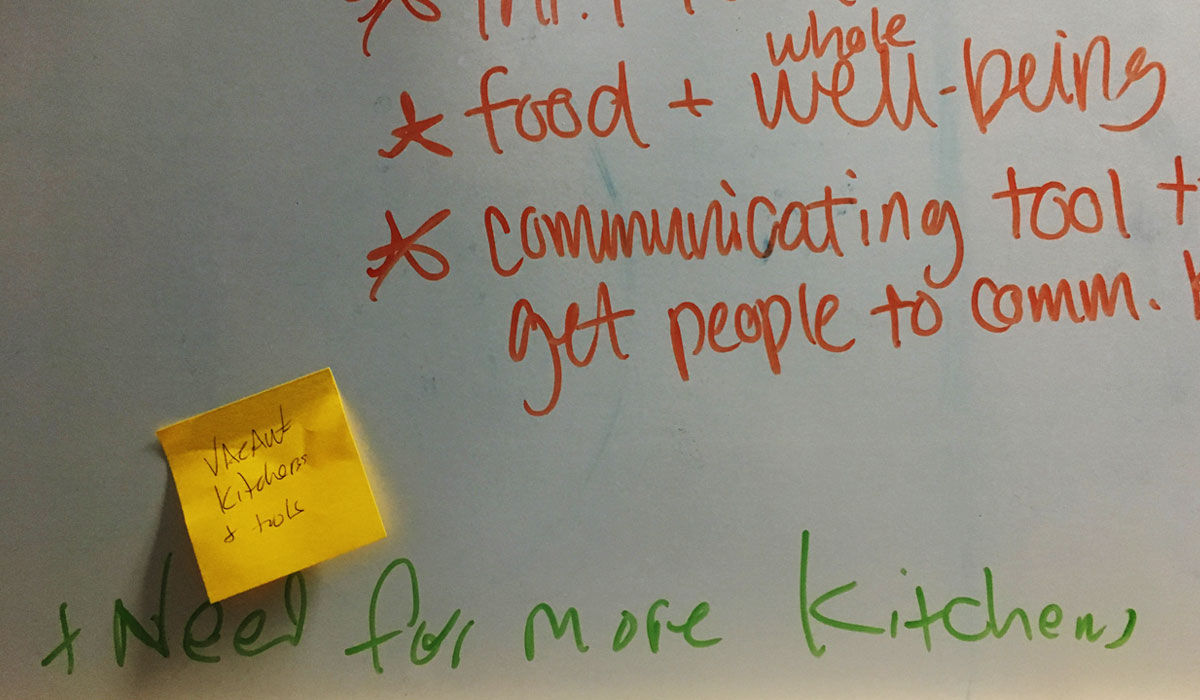 whole
* food + well-being
* communicating tool
get people to comm.
VACANT
Kitchens
+ tools
+ Need for more Kitchens